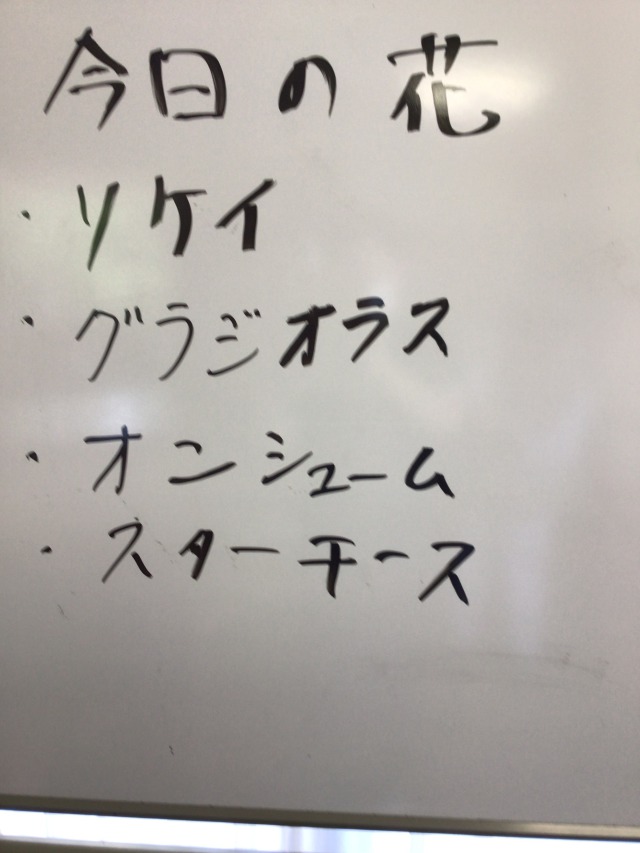 今日の花
・ソケイ
・グラジオラス
・オンシューム
・スターチース